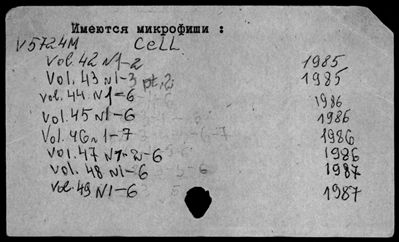 Имеются микрофиши :
V5724M CELL
Vol. 42 N1-2 1985
Vol. 43 N1-3 pt. 2 1985
vol. 44 N1-6 1986
Vol. 45 N1-6 1986
Vol. 46 N1-7 1986
Vol. 47 N1-2-6 1986
Vol. 48 N1-6 1987
Vol. 49 N1-6 1987